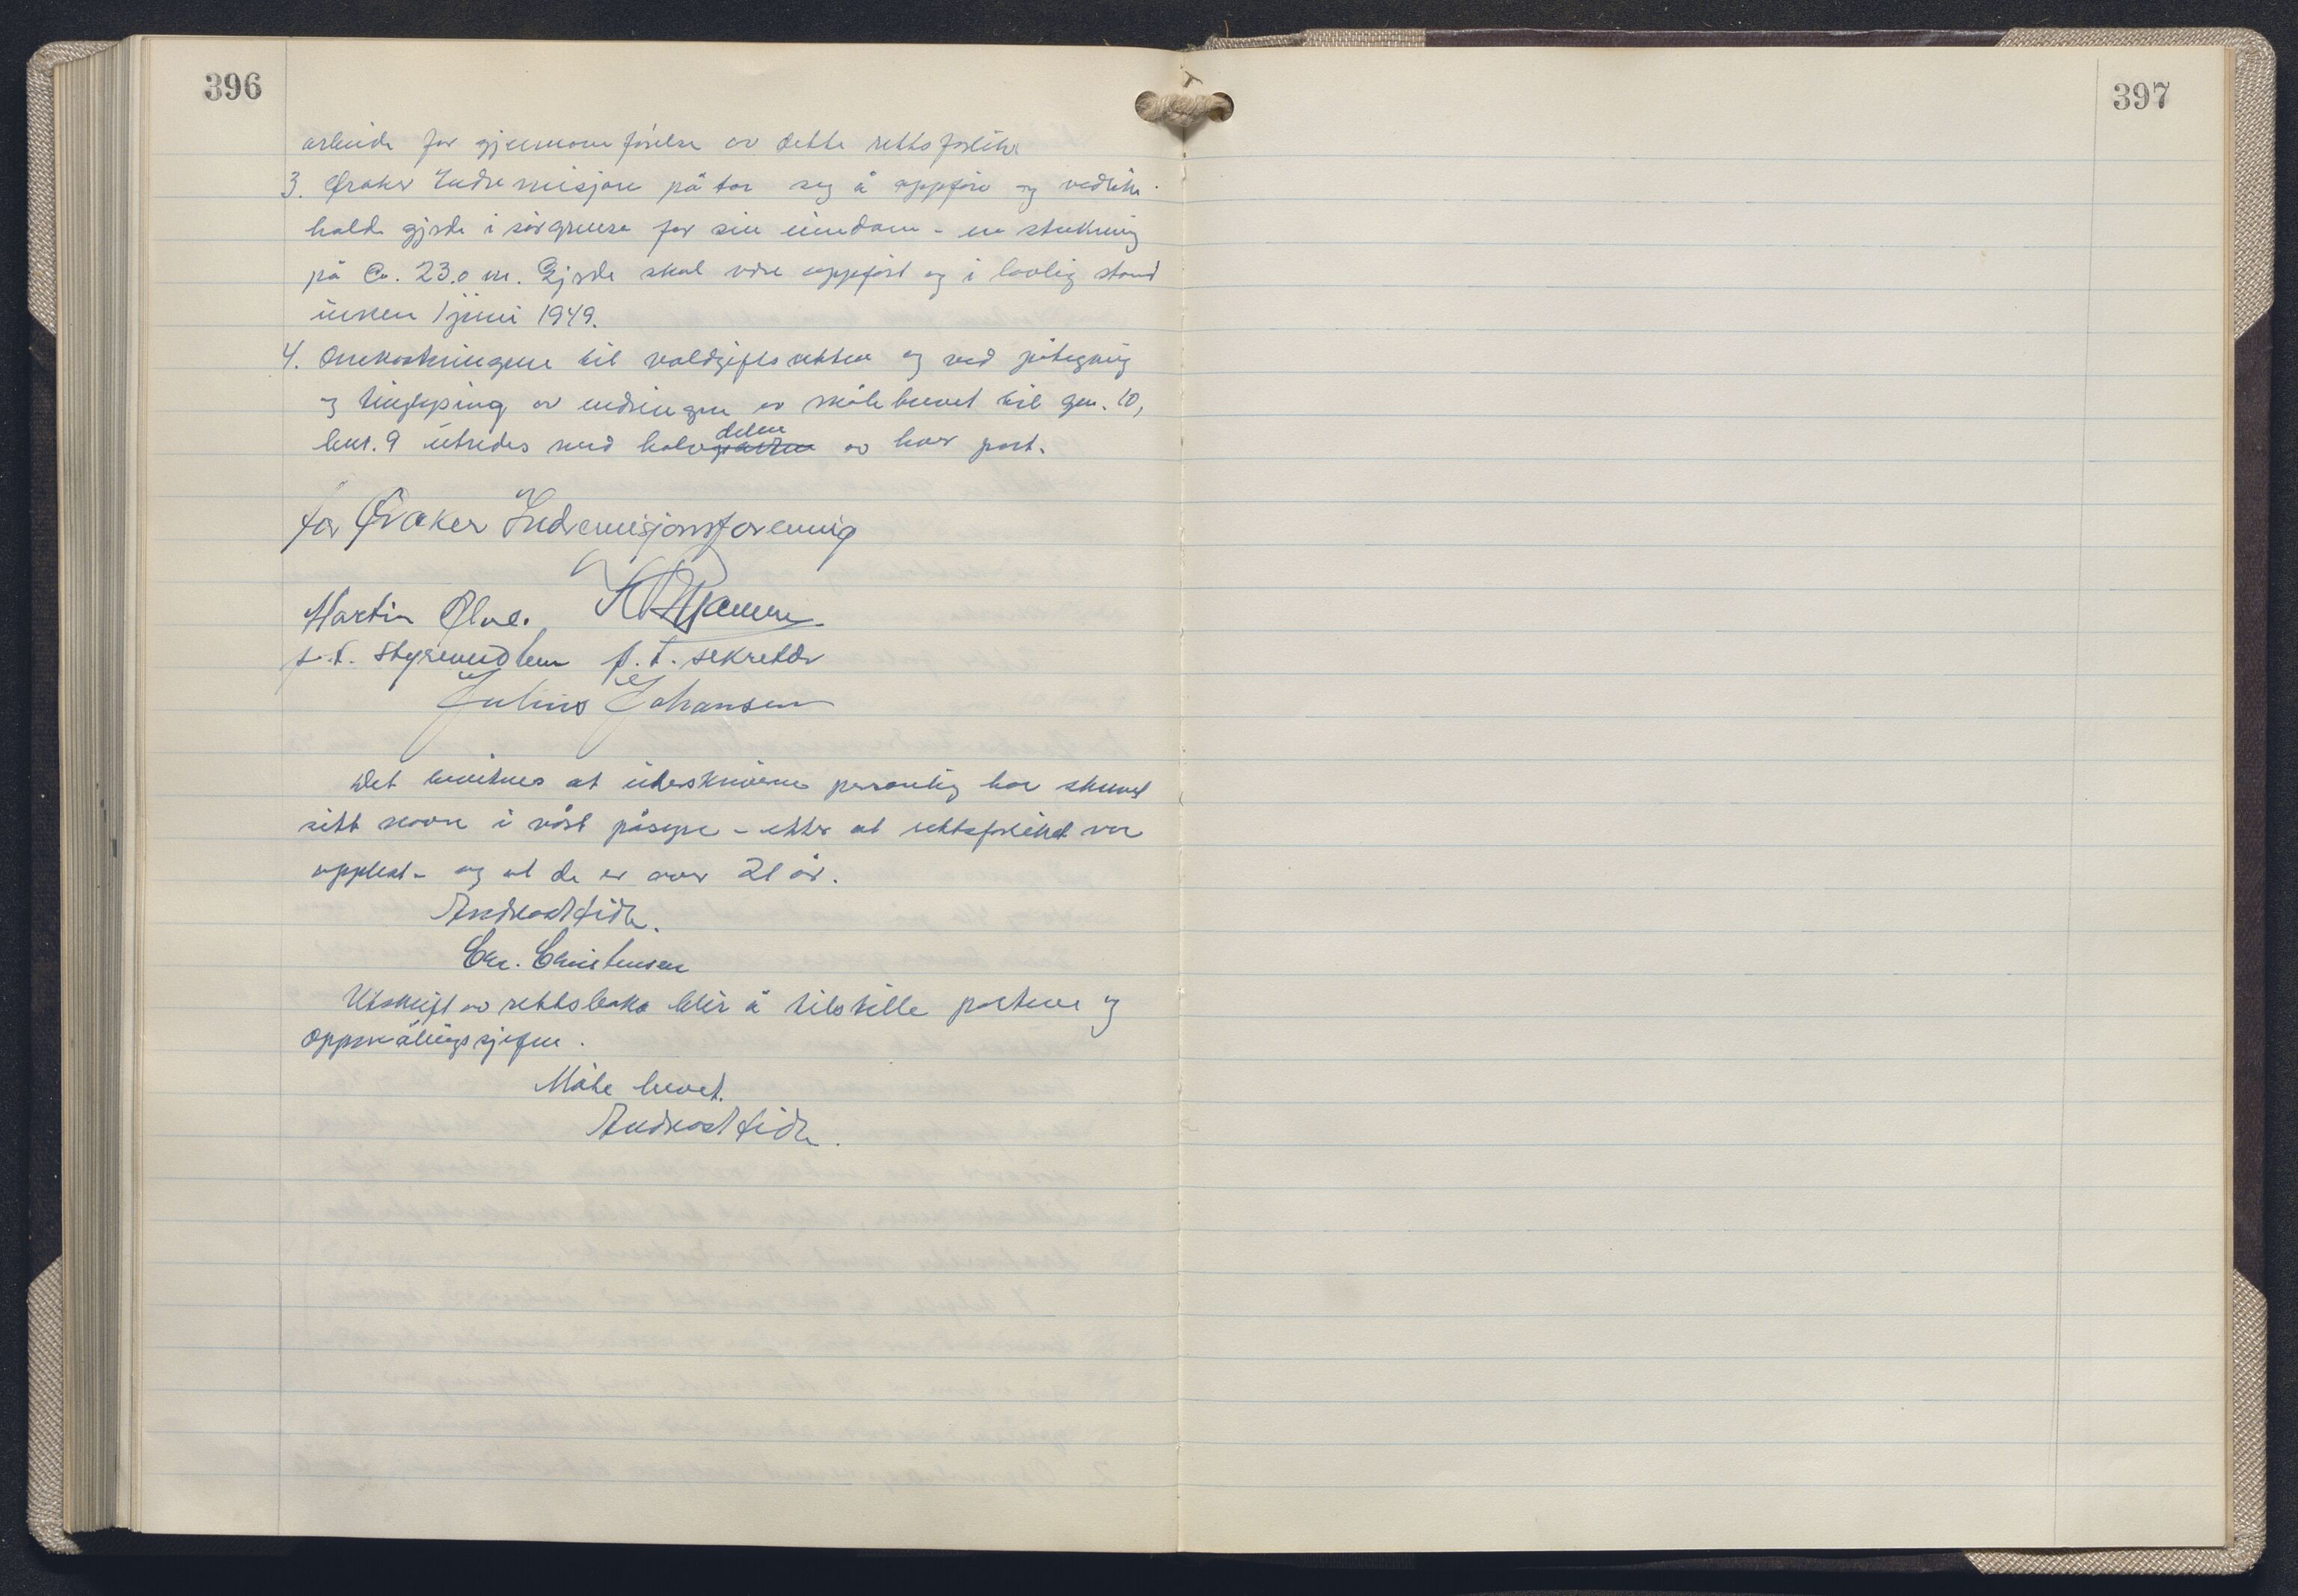 396
397
arbeide for gjennomförelse av dette rettsforliket
3. Øraker Indremisjon påtar seg å oppföre og vedlike-
holde gjerde i sörgrense for sin eiendom - en strekning
på Ca. 23.0 m. Gjerde skal være oppfört og i lovlig stand
innen 1 juni 1949.
4. Omkostningene til voldgiftsretten og ved påtegning
og tinglysing av endringen av målebrevet til gnr. 10,
bnr. 9 utredes med halvdelen av hver part.
for Øraker Indremisjonsforening
Martin
p.t. styremedlem p.t. sekretær
Julius Johansen
Det bevitnes at underskriverne personlig har skrevet
sitt navn i vårt påsyn - etter at rettsforliket var
opplest - og at de er over 21 år.
Chr. Christensen
Utskrift av rettsboka blir å tilstille partene og
oppmålingssjefen.
Møte hevet.